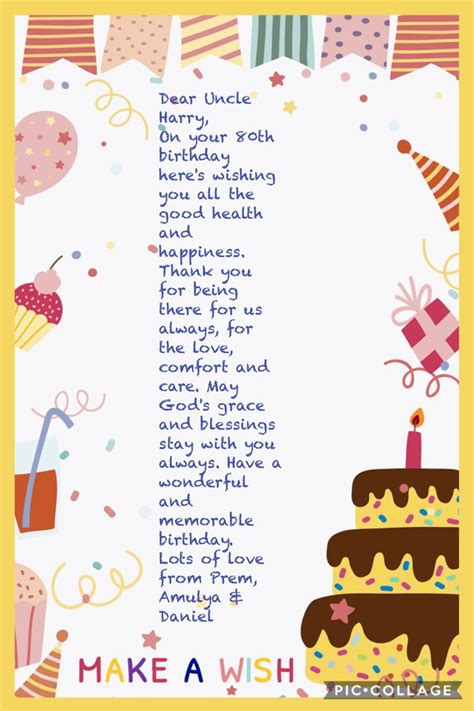 Dear Uncle
Harry,
On your 80th
birthday
here's wishing
you all the
good health
and
happiness.
Thank you
for being
there for us
always, for
the love,
comfort and
care. May
God's grace
and blessings
stay with you
always. Have a
wonderful
and
memorable
birthday.
Lots of love
from Prem,
Amulya &
Daniel
MAKE A WISH
PIC•COLLAGE